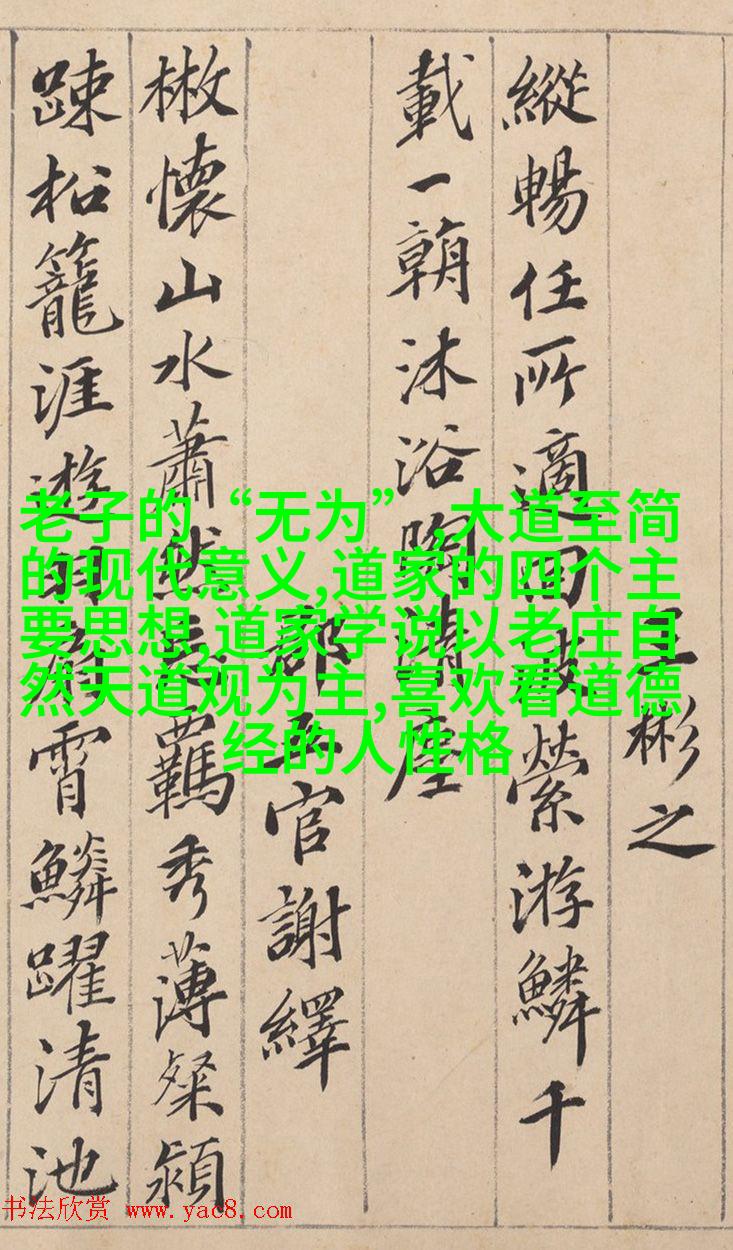 王彬之
縱暢任所適回波縈游鱗千
載一朝沐浴陶清塵
郡五官謝繹
㪚懷山水蕭然忘羈秀薄粲穎
踈松籠涯遊羽扇霄鱗躍清池
老子的“无为”,大道至简
的现代意义,道家的四个主
要思想,道家学说以老庄自
然天道观为主,喜欢看道德
经的人性格
书法欣赏 www.yac8.com